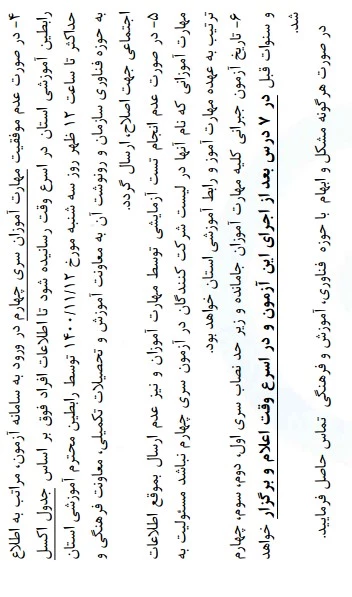 ۴- در صورت عدم موفقیت مهارت آموزان سری چهارم در ورود به سامانه آزمون، مراتب به اطلاع
رابطین آموزشی استان در اسرع وقت رسانیده شود تا اطلاعات افراد فوق بر اساس جدول اکسل
حداکثر تا ساعت ۱۲ ظهر روز سه شنبه مورخ ۱۴۰۰/۱۱/۱۲ توسط رابطین محترم آموزشی استان
به حوزه فناوری سازمان و رونوشت آن به معاونت آموزش و تحصیلات تکمیلی، معاونت فرهنگی و
اجتماعی جهت اصلاح، ارسال گردد.
۵- در صورت عدم انجام تست آزمایشی توسط مهارت آموزان و نیز عدم ارسال بموقع اطلاعات
مهارت آموزانی که نام آنها در لیست شرکت کنندگان در آزمون سری چهارم نباشد مسئولیت به
ترتیب به عهده مهارت آموز و رابط آموزشی استان خواهد بود.
۶- تاریخ آزمون جبرانی کلیه مهارت آموزان جامانده و زیر حد نصاب سری اول، دوم، سوم، چهارم
و سنوات قبل در ۷ درس بعد از اجرای این آزمون و در اسرع وقت اعلام و برگزار خواهد
شد.
در صورت هرگونه مشکل و ابهام با حوزه فناوری، آموزش و فرهنگی تماس حاصل فرمایید.